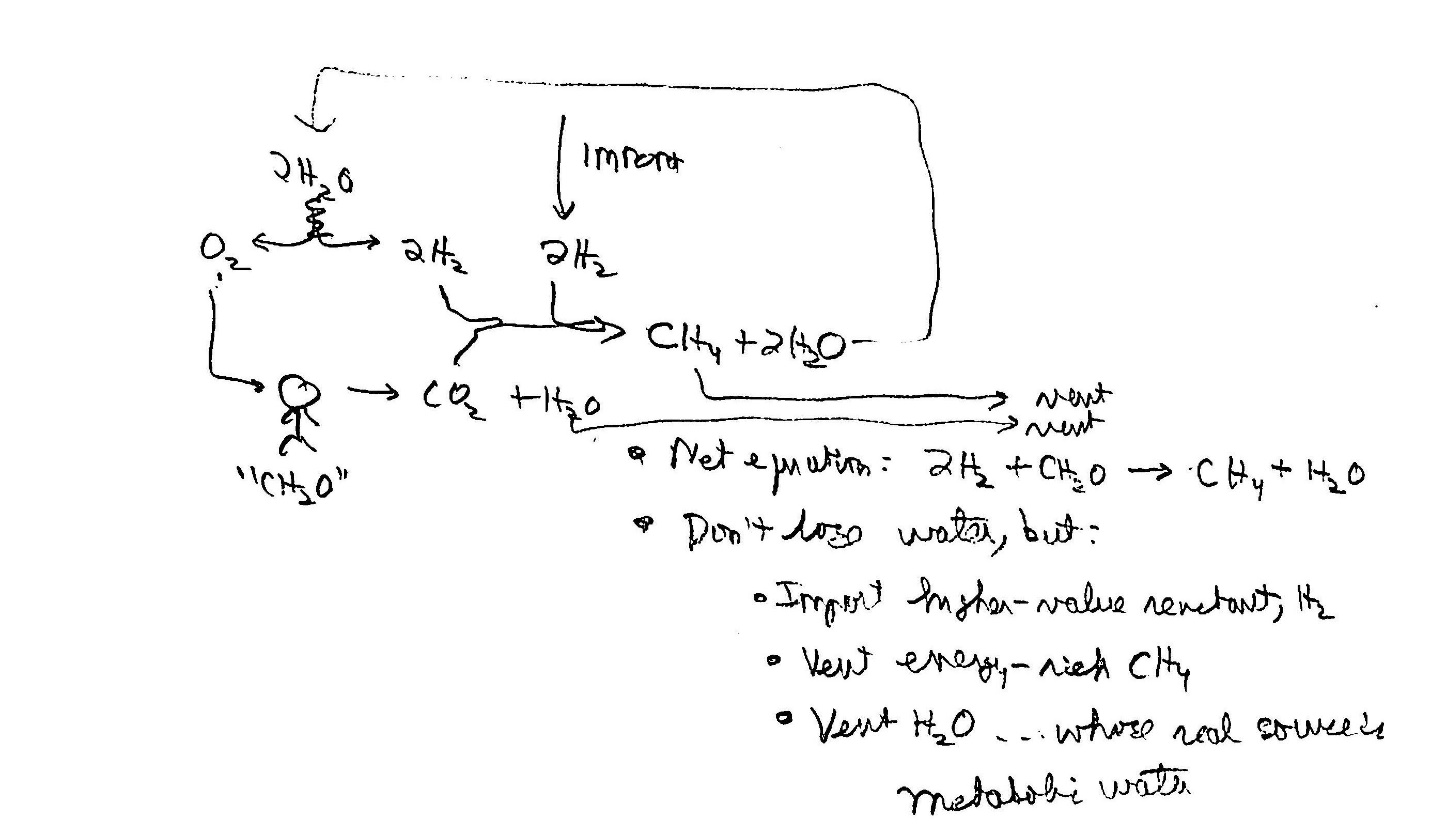 Import
2H₂O
O₂ 2H₂ 2H₂
CH₄ + 2H₂O
CO₂ + H₂O vent
vent
"CH₂O"
• Net equation: 2H₂ + CH₂O → CH₄ + H₂O
• Don't lose water, but:
• Import higher-value reactant, H₂
• Vent energy-rich CH₄
• Vent H₂O ... whose real source is
metabolic water